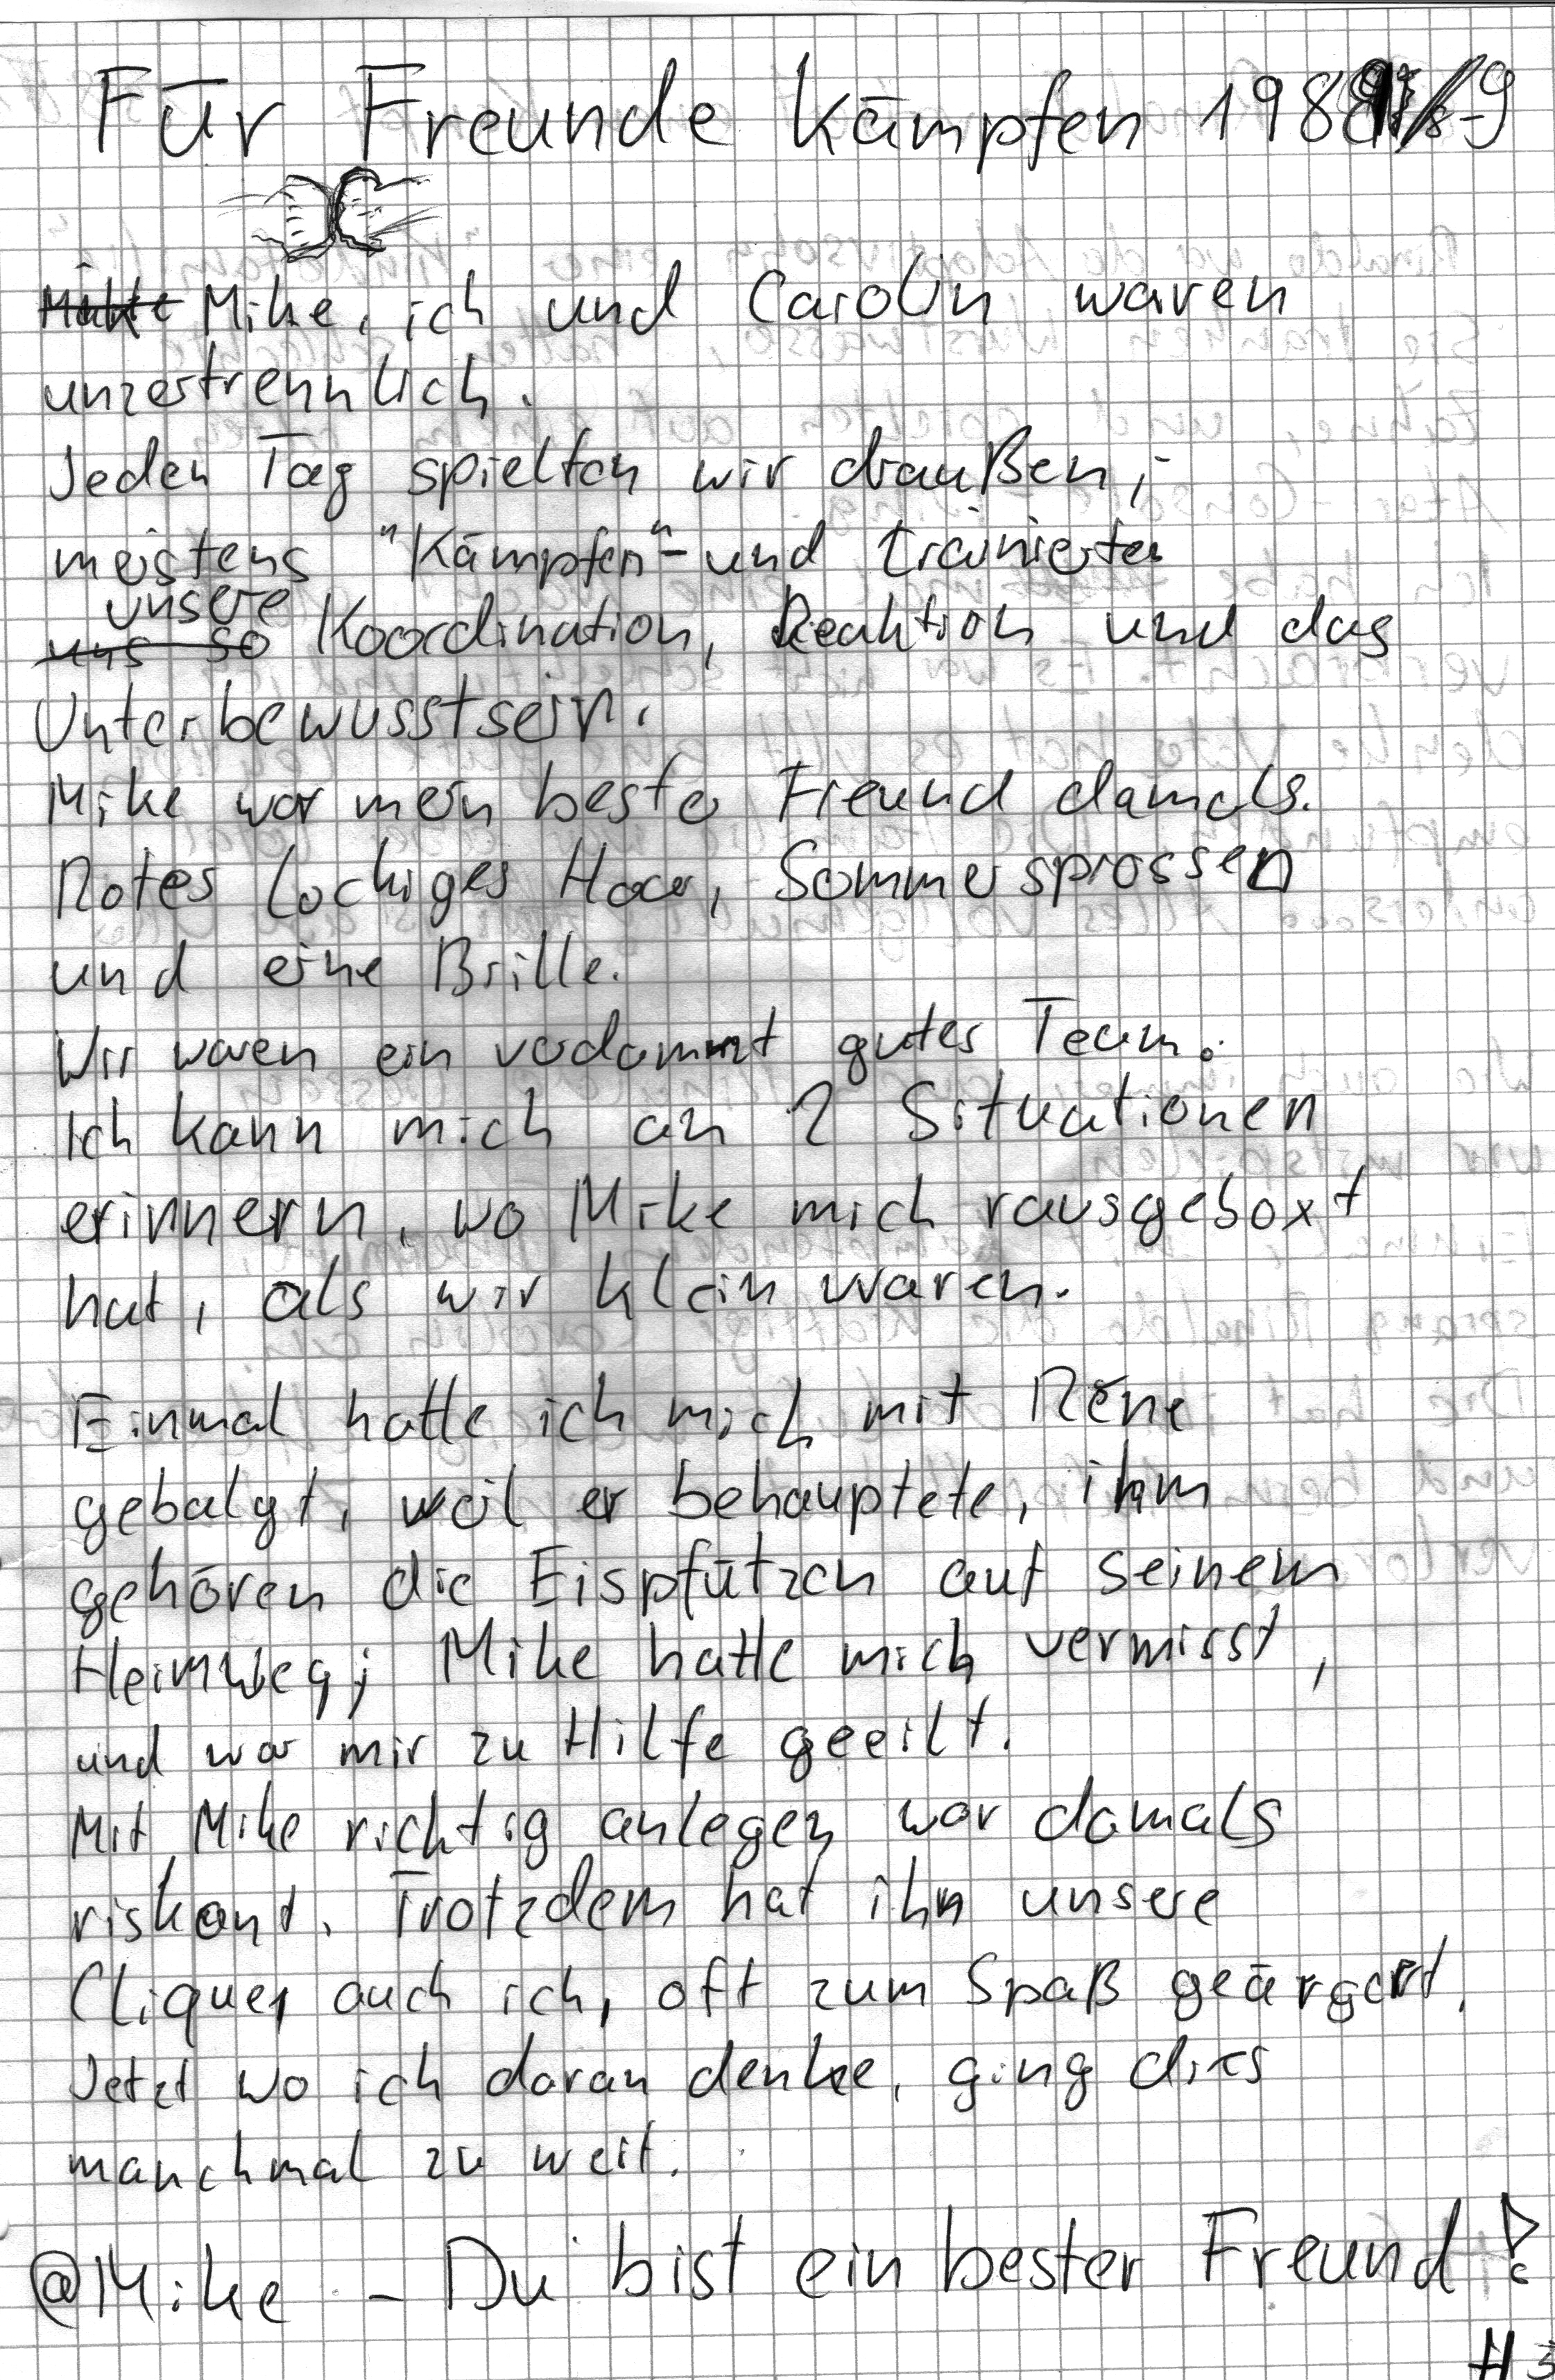 Für Freunde kämpfen 1988-9
Mike, ich und Carolin waren
unzertrennlich.
Jeden Tag spielten wir draußen,-
meistens "Kämpfen"- und trainierten
unsere
uns so Koordination, Reaktion und das
Unterbewusstsein.
Mike war mein bester Freund damals.
Rotes lockiges Haar, Sommersprossen
und eine Brille.
Wir waren ein verdammt gutes Team.
Ich kann mich an 2 Situationen
erinnern, wo Mike mich rausgeboxt
hat, als wir klein waren.
Einmal hatte ich mich mit Réne
gebalgt, weil er behauptete, ihm
gehören die Eispfützen auf seinem
Heimweg; Mike hatte mich vermisst,
und war mir zu Hilfe geeilt.
Mit Mike richtig anlegen war damals
riskant. Trotzdem hat ihn unsere
Clique, auch ich, oft zum Spaß geärgert.
Jetzt wo ich daran denke, ging dies
manchmal zu weit.
@Mike - Du bist ein bester Freund!
#3